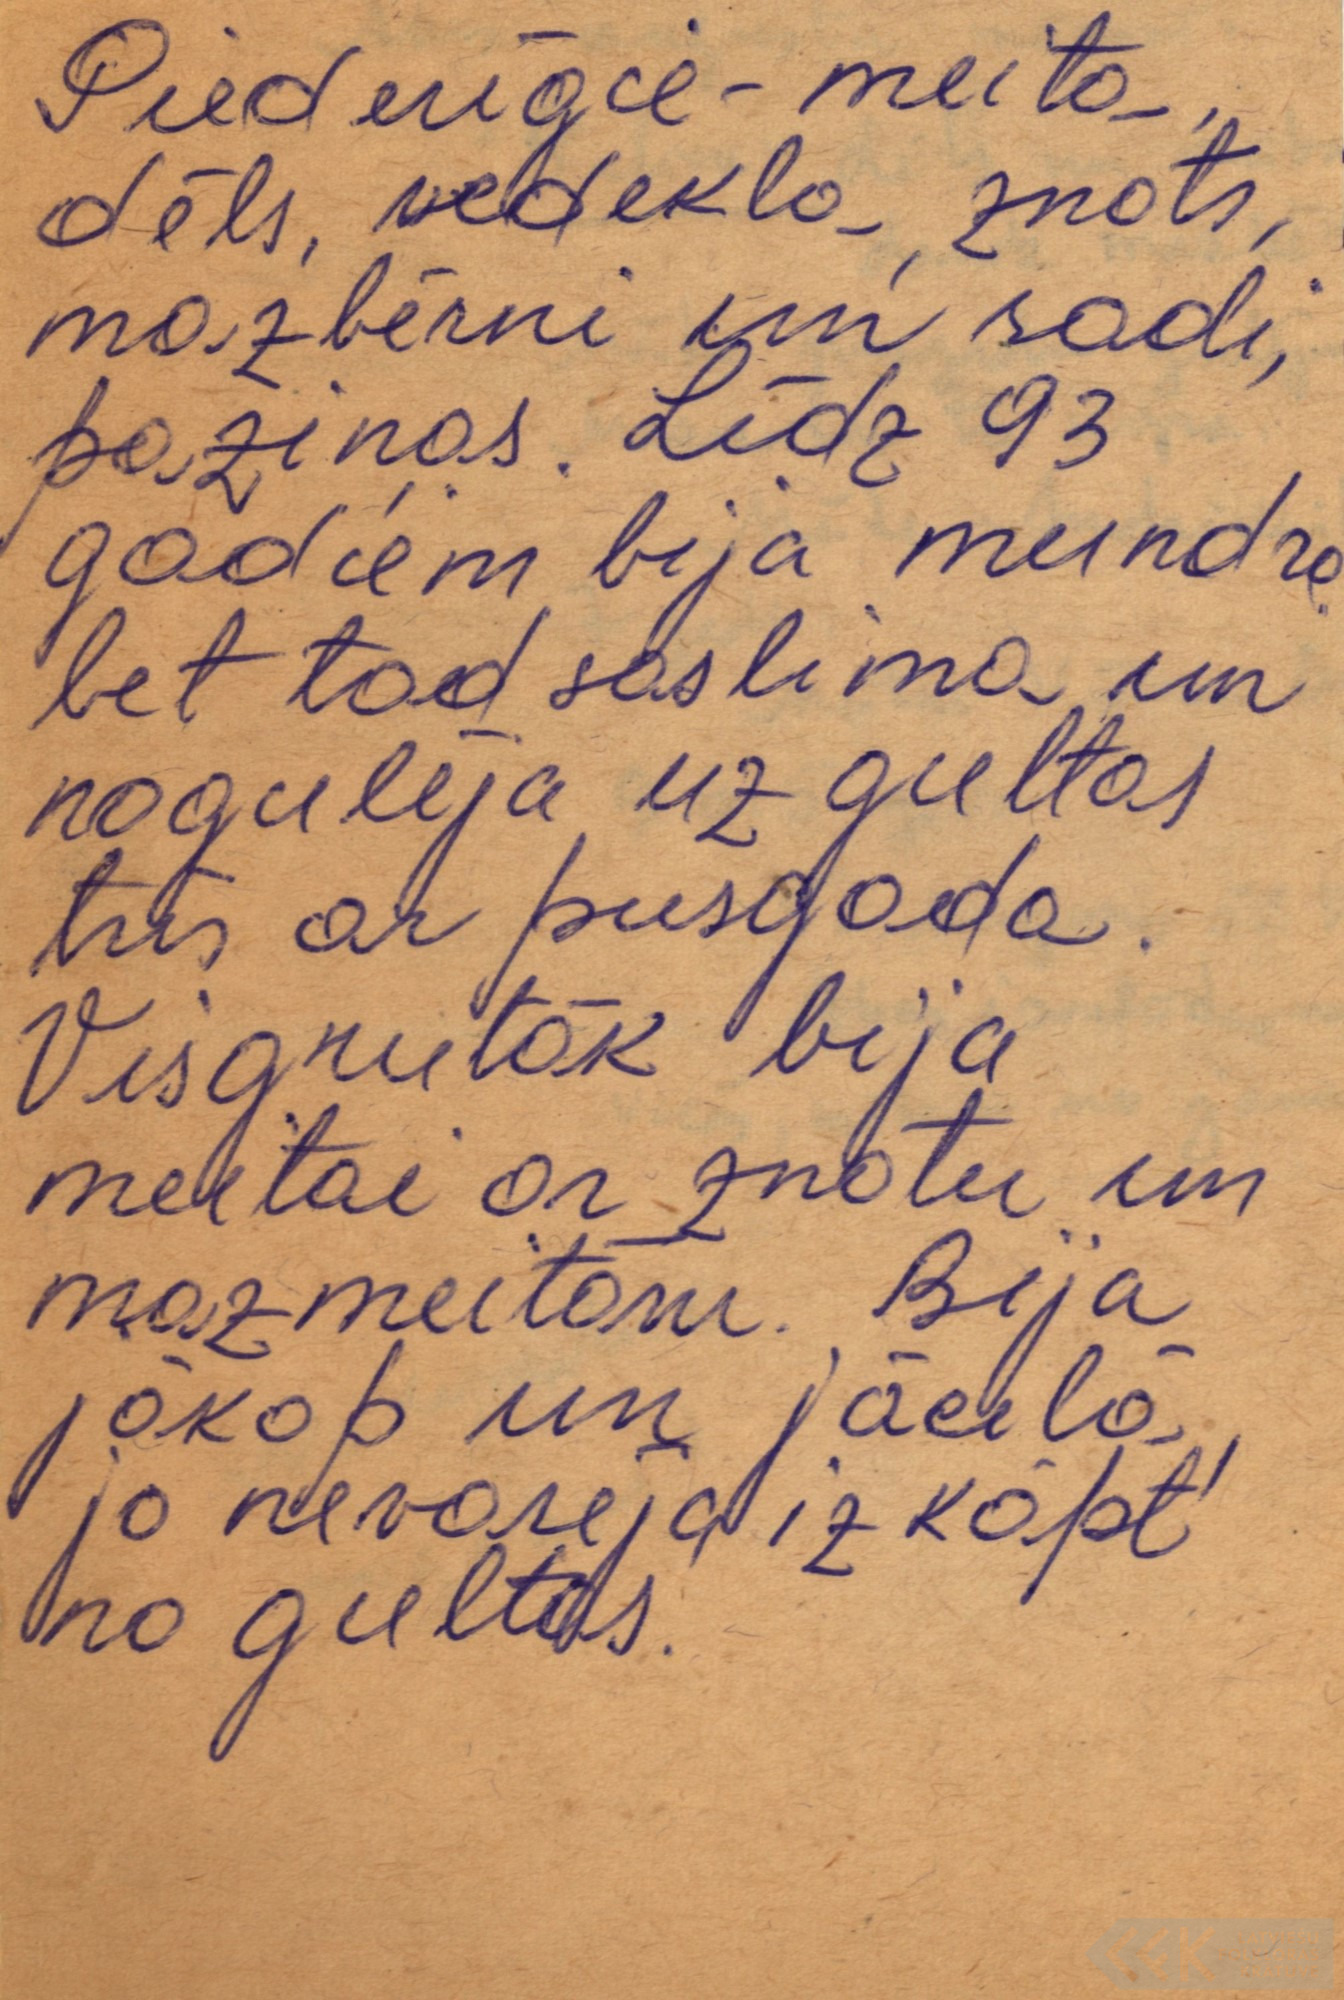 Piederīgie - meita,
dēls, vedekla, znots,
mazbērni un radi,
paziņas. Līdz 93
gadiem bija mundra,
bet tad saslima un
nogulēja uz gultas
trīs ar pusgada.
Visgrūtāk bija
meitai ar znotu un
mazmeitām. Bija
jākop un jācilā,
jo nevarēja izkāpt
no gultas.